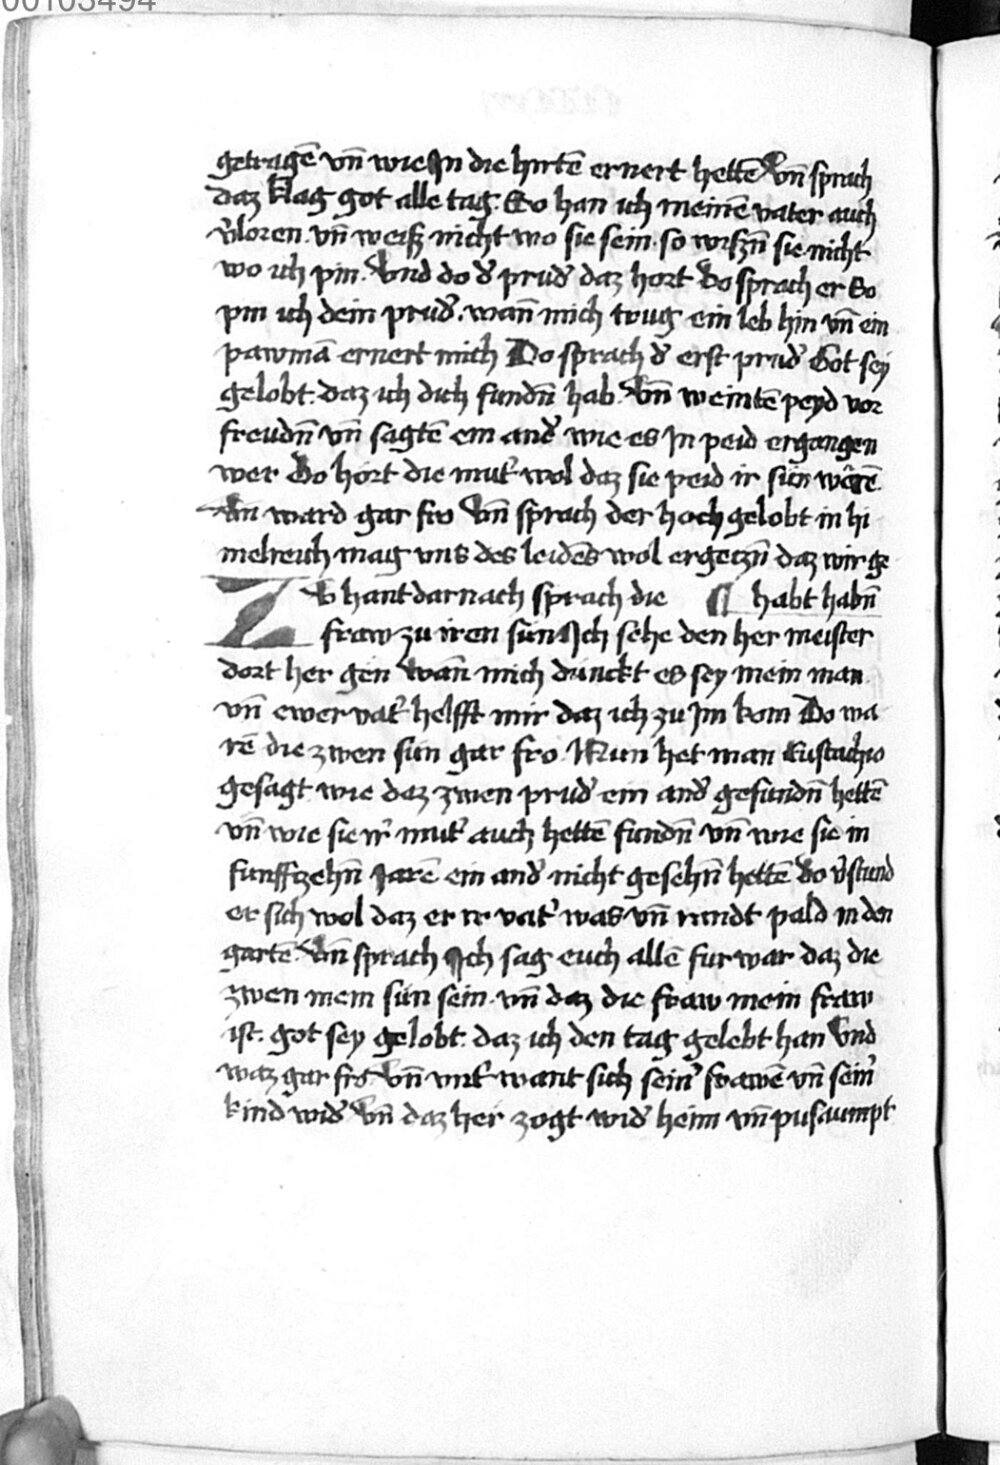 00103494
getragē vn̄ wie Jn die hirtē ernert hettē Vn̄ sprach
daz klag got alle tag. So han ich meinē vater auch
v̉loren. vn̄ weiß nicht wo sie sein. so wißn̄ sie nicht
wo ich pin. Vnd do d̉ prud̉ daz hort Do sprach er So
pin ich dein prud̉. wan̄ mich trug ein leb hin vn̄ ein
pawmā ernert mich Do sprach d̉ erst prud̉ Got sey
gelobt. daz ich dich fundn̄ hab. Vn̄ weintē peyd vor
freudn̄ vn̄ sagtē ein and̉ wie es Jn peid ergangen
wer Do hort die mut̉ wol daz sie peid ir sün wêrē.
Vn̄ ward gar fro Vn̄ sprach der hoch gelobt in hi
melreich mag vns des leidēs wol ergetzn̄ daz wir ge
Zv hant darnach sprach die ¶ habt habn̄
fraw zu iren sün Jch sehe den her meister
dort her gen wan̄ mich dunckt es sey mein man.
vn̄ ewer vat̉ helfft mir daz ich zu Jm kom Do wa
rē die zwen sün gar fro. Nun het man Eustachio
gesagt wie daz zwen prud̉ ein and̉ gefundn̄ hettē
vn̄ wie sie ir̉ mut̉ auch hettē fundn̄ vn̄ wie sie in
funffzehn̄ Jarē ein and̉ nicht gesehn̄ hettē Do v̉stund
er sich wol daz er ir vat̉ was vn̄ rundt pald in den
gartē. Vn̄ sprach Jch sag euch allē fur war daz die
zwen mein sün sein. vn̄ daz die fraw mein fraw
ist. got sey gelobt. daz ich den tag gelebt han Vnd
waz gar fro Vn̄ vnt̉ want sich sein̉ frawē vn̄ sein̉
kind wid̉ Vn̄ daz her zogt wid̉ heim vn̄ pusaumpt